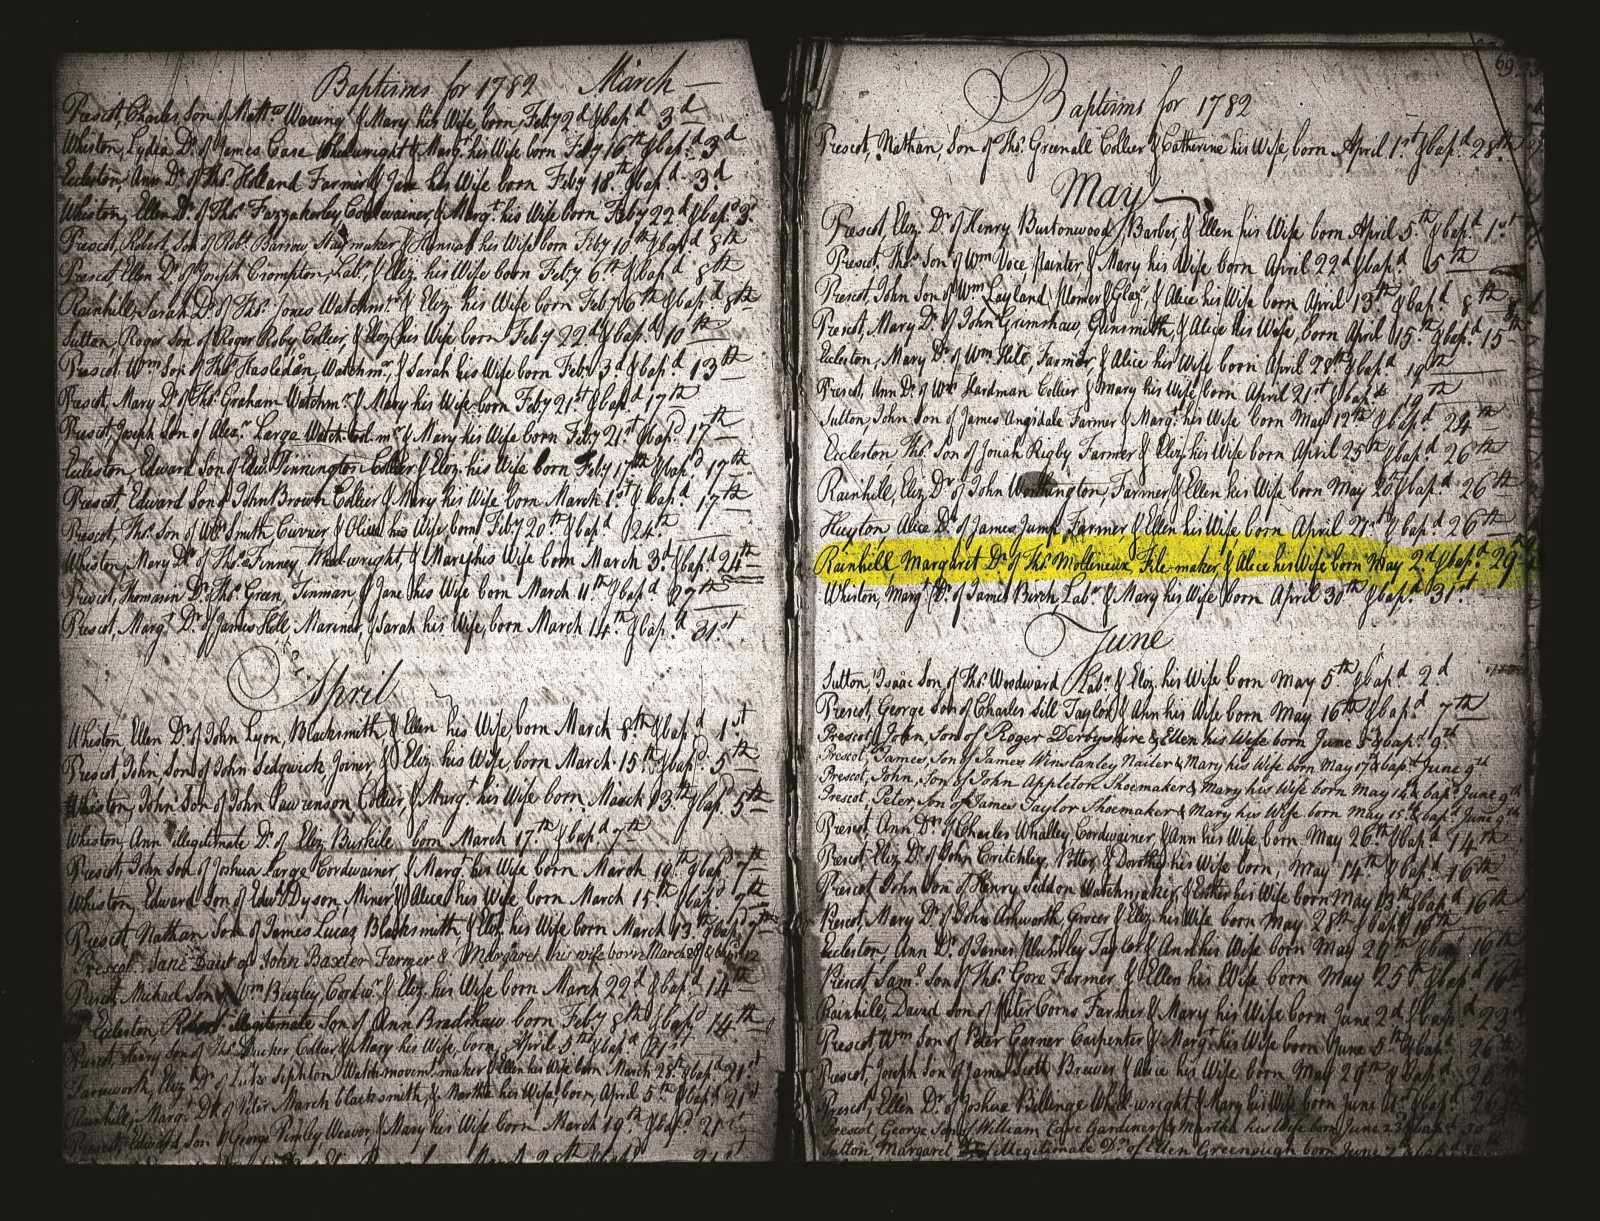 Baptisms for 1782 March
Prescot, Charles, Son of Matt.w Wareing & Mary his Wife, born Feb.y 2d & bap.d 3d
Whiston, Lydia Dr. of James Case Wheelwright & Marg.t his Wife born Feb.y 16th & bap.d 3d
Eccleston, Ann Dr. of Tho.s Holland Farmer & Jane his Wife born Feb.y 18th & bap.d 3d
Whiston, Ellen Dr. of Tho.s Fazzakerley Cordwainer, & Marg.t his Wife born Feb.y 22d & bap.d 3d
Prescot, Robert, Son of Rob.t Barrow Staymaker & Hannah his Wife born Feb.y 10th & bap.d 8th
Prescot, Ellen Dr. of Joseph Crompton, Lab.r & Eliz. his Wife born Feb.y 6th & bap.d 8th
Rainhill, Sarah Dr. of Tho.s Jones Watchm.r & Eliz. his Wife born Feb.y 6th & bap.d 8th
Sutton, Roger Son of Roger Roby Collier, & Eliz. his Wife born Feb.y 22d & bap.d 10th
Prescot, Wm Son of Tho.s Hasleden, Watchm.r, & Sarah his Wife born Feb.y 3d & bap.d 13th
Prescot, Mary Dr. of Tho.s Graham Watchm.r & Mary his Wife born Feb.y 21st & bap.d 17th
Prescot, Joseph Son of Alex.r Large Watch tool m.r & Mary his Wife born Feb.y 21st & bap.d 17th
Eccleston, Edward Son of Edw.d Tinnington Collier & Eliz. his Wife born Feb.y 17th & bap.d 17th
Prescot, Edward Son of John Brown Collier & Mary his Wife born March 1st & bap.d 17th
Prescot, Tho.s Son of Wm Smith Currier & Olive his Wife, born Feb.y 20th & bap.d 24th
Whiston, Mary Dr. of Tho.s Finney, Wheel-wright, & Mary his Wife born March 3d & bap.d 24th
Prescot, Thomasin Dr. of Tho.s Green, Tinman, & Jane his Wife born March 11th & bap.d 27th
Prescot, Marg.t Dr. of James Hill, Mariner, & Sarah his Wife, born March 14th & bap.d 31st
April
Whiston, Ellen Dr. of John Lyon, Blacksmith, & Ellen his Wife born March 8th & bap.d 1st
Prescot, John Son of John Sedgwick Joiner & Eliz. his Wife, born March 15th & bap.d 5th
Whiston, John Son of John Lawrenson Collier, & Marg.t his Wife born March 3th & bap.d 5th
Whiston, Ann illegitimate Dr. of Eliz. Burkile born March 17th & bap.d 7th
Prescot, John Son of Joshua Large Cordwainer, & Marg.t his Wife born March 19th & bap.d 7th
Whiston, Edward Son of Edw.d Dyson, Miner & Alice his Wife born March 15th & bap.d
Prescot Nathan Son of James Lucas Blacksmith, & Eliz. his Wife born March 13th & bap.d 7th
Prescot Jane Daut of John Baxter Farmer & Margaret his wife born March
Prescot, Michael Son of Wm Beezley, Cordw.r & Eliz. his Wife born March 22d & bap.d 14th
Eccleston, illegitimate Son of Ann Bradshaw born Feb.y 8th & bap.d 14th
Prescot Henry Son of Tho.s Collier & Mary his Wife, born April 5th & bap.d 21st
Farnworth, Eliz. Dr. of Luke Sephton Watch-movem.t-maker & Ellen his Wife born March 28th & bap.d 21st
Rainhill, Marg.t Dr. of Peter March blacksmith, & Martha his Wife, born, April 5th & bap.d 21st
Prescot, Edward Son of George Weaver, & Mary his Wife born March 19th & bap.d 21st
69
Baptisms for 1782
Prescot, Nathan, Son of Tho.s Greenall Collier & Catherine his Wife, born April 1st & bap.d 28th
May
Prescot, Eliz. Dr. of Henry Burtonwood, Barber, & Ellen his Wife born April 5th & bap.d 1st
Prescot, Tho.s Son of Wm Voce Painter & Mary his Wife born April 22d & bap.d 5th
Prescot, John Son of Wm Layland Plomer & Glaz.r & Alice his Wife born April 13th & bap.d 8th
Prescot, Mary Dr. of John Grimshaw Gunsmith, & Alice his Wife, born April 15th & bap.d 15th
Eccleston, Mary Dr. of Wm Hile, Farmer, & Alice his Wife born April 28th & bap.d 19th
Prescot, Ann Dr. of Wm Hardman Collier & Mary his Wife, born April 21st & bap.d 19th
Sutton John Son of James Angsdale Farmer & Marg.t his Wife born May 12th & bap.d 24th
Eccleston, Tho.s Son of Jonah Rigby Farmer & Eliz. his Wife born April 25th & bap.d 26th
Rainhill, Eliz. Dr. of John Worthington, Farmer & Ellen his Wife born May & bap.d 26th
Huyton, Alice Dr. of James Jump Farmer, & Ellen his Wife, born April & bap.d 26th
Rainhill, Margaret Dr. of Tho.s Mollineux, File-maker, & Alice his Wife born May 2d & bap.d 29th
Whiston, Marg.t Dr. of James Birch, Lab.r & Mary his Wife born April 30th & bap.d 31st
June
Sutton, Isaac Son of Tho.s Woodward Lab.r & Eliz. his Wife born May 5th & bap.d 2d
Prescot, George Son of Charles Sill Taylor & Ann his Wife born May 16th & bap.d 7th
Prescot, John, Son of Roger Derbyshire & Ellen his Wife born June 5 & bap.d 9th
Prescot, James, Son of James Winstanley Nailer & Mary his Wife born May 17 & bap.d June 9th
Prescot, John, Son of John Appleton Shoemaker & Mary his Wife born May 16 & bap.d June 9th
Prescot, Peter Son of James Taylor Shoemaker & Mary his Wife born May 15th & bap.d June 9th
Prescot, Ann Dr. of Charles Whalley Cordwainer & Ann his Wife born May 26th & bap.d 14th
Prescot, Eliz. Dr. of John Critchley, Potter, & Dorothy his Wife born, May 14th & bap.d 16th
Prescot John Son of Henry Seddon Watchmaker, & Esther his Wife born May 13th & bap.d 16th
Prescot, Mary Dr. of John Ashworth, Grocer & Eliz. his Wife born May 28th & bap.d 16th
Eccleston, Ann Dr. of James Taylor & Ann his Wife born May & bap.d 16th
Prescot Sam.l Son of Tho.s Gore Farmer, & Ellen his Wife born May 25th & bap.d 16th
Rainhill, David Son of Peter Corns Farmer & Mary his Wife born June 2d & bap.d 23d
Prescot Wm Son of Peter Garner Carpenter & Marg.t his Wife born June 5th & bap.d 26th
Prescot, Joseph Son of James Scott Brewer & Alice his Wife born May & bap.d 26th
Prescot, Ellen Dr. of Joshua Billinge Wheel-wright & Mary his Wife born June & bap.d
Prescot, George Son of William Case Gardiner & Martha his Wife born June 23 & bap.d 30th
Sutton, Margaret illegitimate Dr. of Ellen Greenough born June